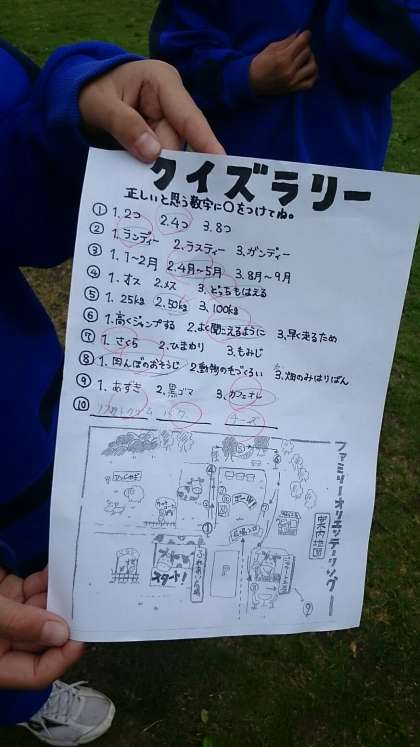 クイズラリー
正しいと思う数字に○をつけてね。
① 1.2つ 2.4つ 3.8つ
② 1.ランディー 2.ラスティー 3.ガンディー
③ 1.1〜2月 2.4月〜5月 3.8月〜9月
④ 1.オス 2.メス 3.どっちもはえる
⑤ 1.25kg 2.50kg 3.100kg
⑥ 1.高くジャンプする 2.よく聞こえるように 3.早く走るため
⑦ 1.さくら 2.ひまわり 3.もみじ
⑧ 1.田んぼのおそうじ 2.動物の毛づくろい 3.畑のみはりばん
⑨ 1.あずき 2.黒ゴマ 3.カフェオレ
⑩ チーズ
ファミリーオリエンテーリング
案内地図
スタート!
ふれあい広場
P
⑨